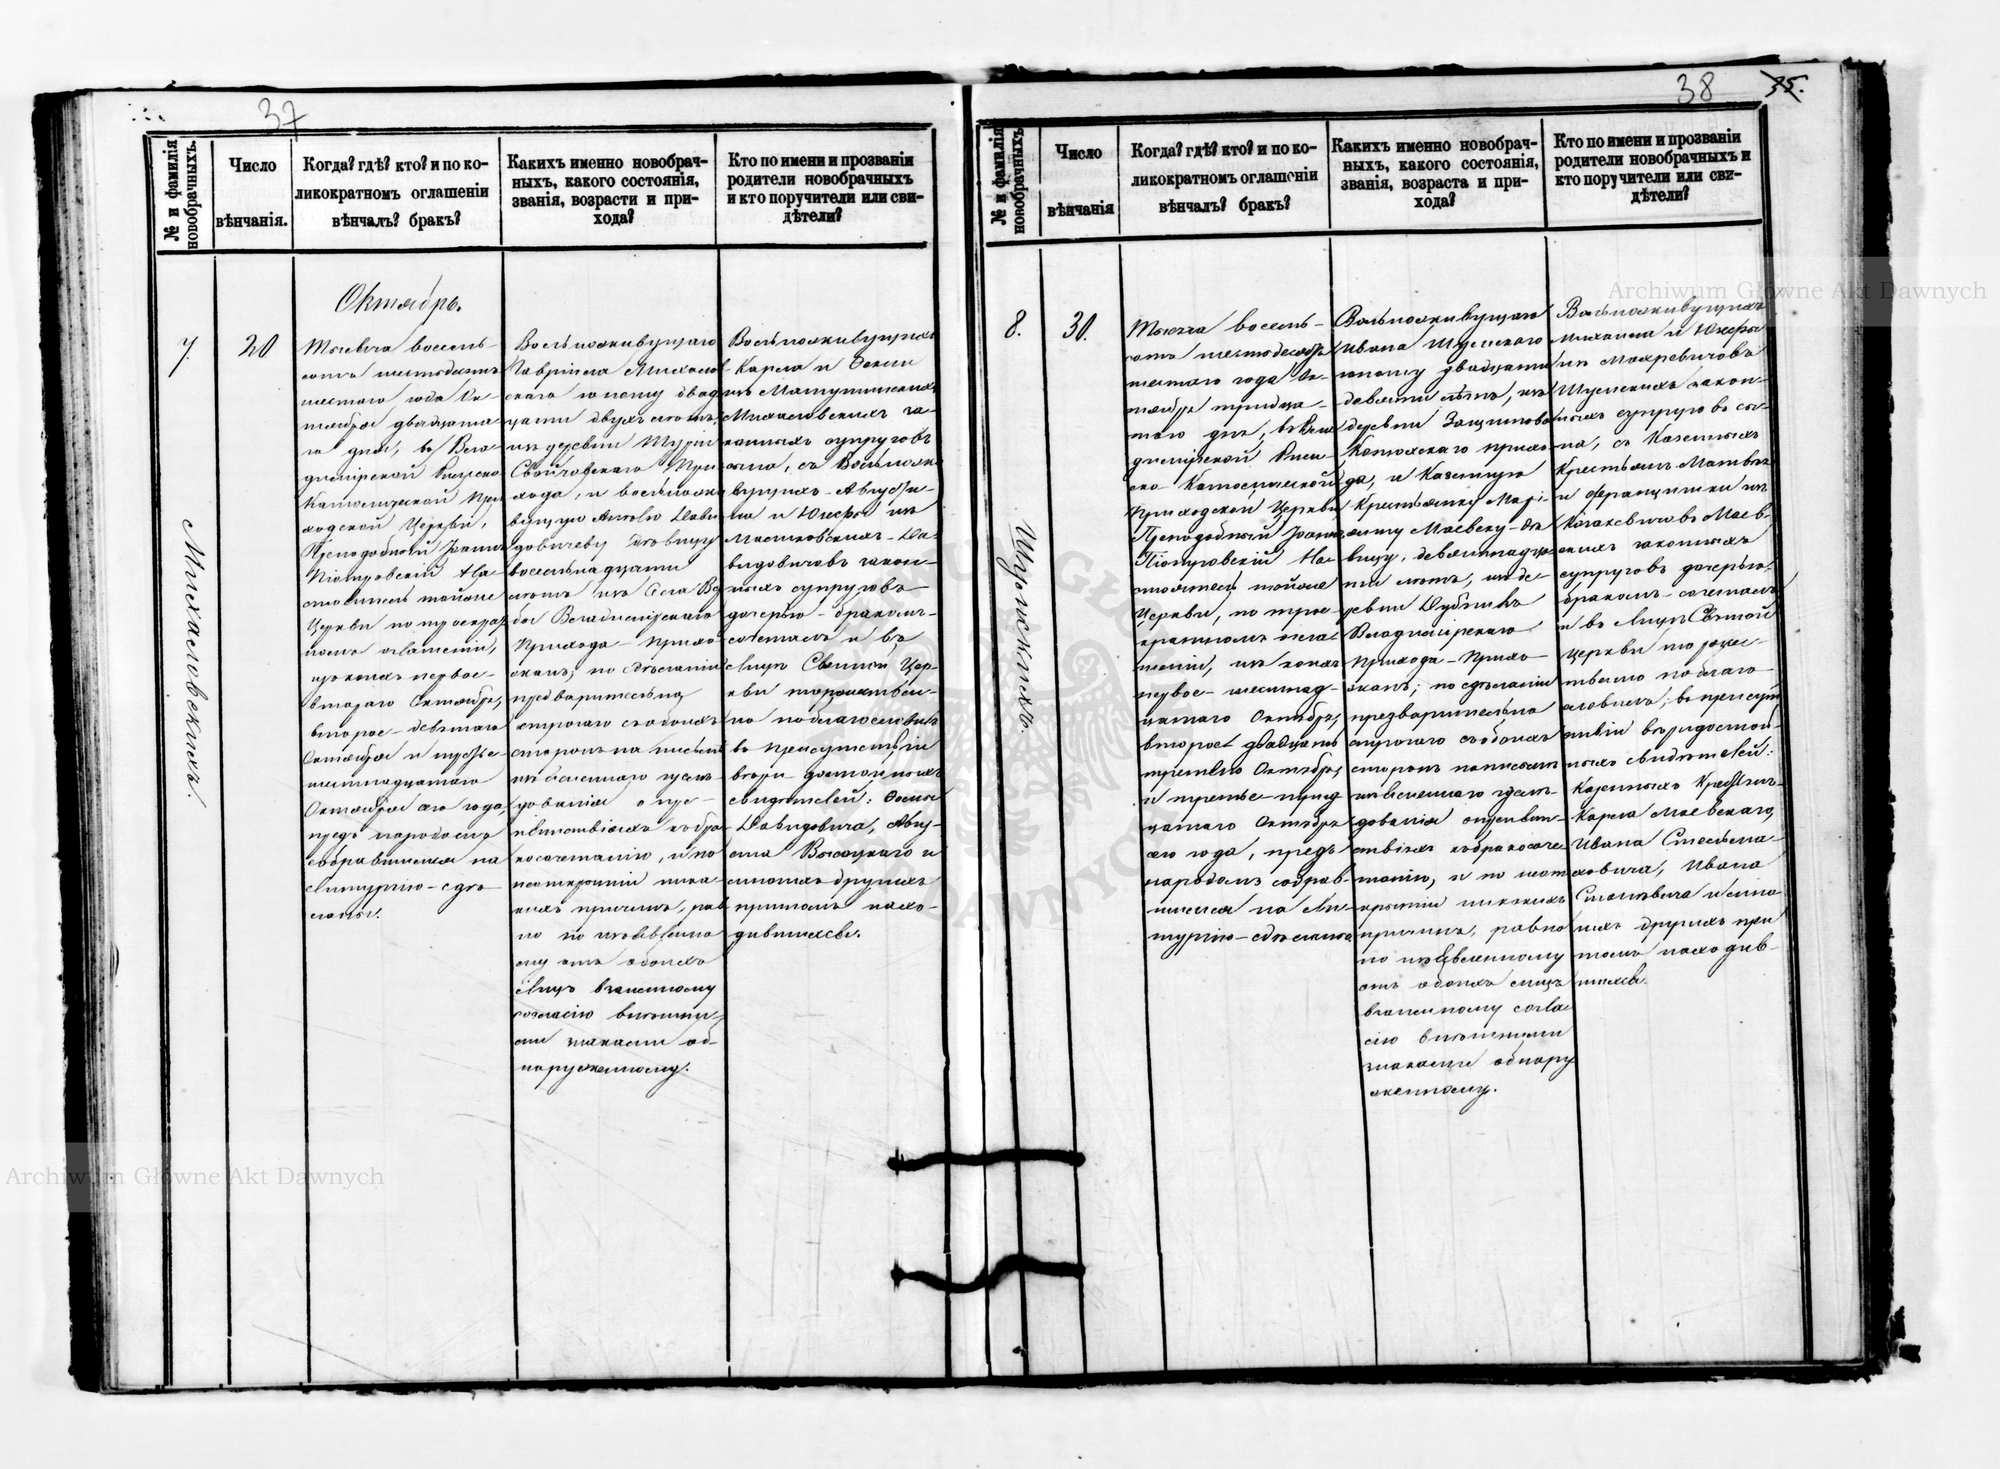 37
№ и фамилія новобрачныхъ.
Число вѣнчанія.
Когда? гдѣ? кто? и по ко-
ликократномъ оглашеніи
вѣнчалъ? бракъ?
Какихъ именно новобрач-
ныхъ, какого состоянія,
званія, возрасти и при-
хода?
Кто по имени и прозваніи
родители новобрачныхъ
и кто поручители или сви-
дѣтели?
7.
Михаловскихъ.
20
Октябрь.
Тысяча восемь-
сотъ шестьдесятъ
шестаго года Ок-
тября двадцата-
го дня, въ Вла-
димірской Римско
Католической При
ходской Церкви,
Преподобный Іоаннъ
Піотровскій На-
стоятель тойже
Церкви по троекрат
номъ оглашеніи,
изъ коихъ первое-
втораго Октября,
второе - девятаго
Октября и третье-
шестнадцатаго
Октября сего года,
предъ народомъ
собравшимся на
Литургію - сдѣ
ланы.
Вольноживущаго
Гавріила Михалов
скаго юношу двад
цати двухъ лѣтъ,
изъ деревни
Свойчовскаго При
хода, и вольножи
вущую Анелю Дави
довичеву дѣвицу
восемнадцати
лѣтъ изъ села
Владимірскаго
Прихода - прихо
жанъ; по сдѣланіи
предварительно
строгаго съ обоихъ
сторонъ на письмѣ
изъясненнаго изслѣ
дованія о пре-
пятствіяхъ къ бра
косочетанію, и по
неоткрытіи ника-
кихъ причинъ, рав
но по изъявленно
му отъ обоихъ
лицъ взаимному
согласію внѣшни-
ми знаками об-
наруженному.
Вольноживущихъ
Карла и
изъ
Михаловскихъ за-
конныхъ супруговъ
сына, съ Вольножи
вущихъ - Августи-
на и Юзефы изъ
Да-
видовичовъ закон-
ныхъ супруговъ
дочерью - бракомъ-
сочеталъ и въ
лицѣ Святой Цер-
кви торжествен-
но поблагословилъ
въ присутствіи
вѣри достойныхъ
свидѣтелей:
Давидовича, Авгу-
ста Высоцкаго и
многихъ другихъ
притомъ нахо-
дившихся.
38
35.
№ и фамилія новобрачныхъ.
Число вѣнчанія
Когда? гдѣ? кто? и по ко-
ликократномъ оглашеніи
вѣнчалъ? бракъ?
Какихъ именно новобрач-
ныхъ, какого состоянія,
званія, возраста и при-
хода?
Кто по имени и прозваніи
родители новобрачныхъ и
кто поручители или сви-
дѣтели?
8.
Шумскихъ.
30.
Тысяча восемь-
сотъ шестьдесятъ
шестаго года Ок-
тября тридца-
таго дня, въ Вла
димірской Рим
ско Католической
Приходской Церкви
Преподобный Іоаннъ
Піотровскій На-
стоятель тойже
Церкви, по трое-
кратномъ огла-
шеніи, изъ коихъ
первое - шестнад-
цатаго Октября,
второе двадцать
третяго Октября,
и третье трид
цатаго Октября
сего года, предъ
народомъ собрав-
шимся на Ли-
тургію - сдѣланы.
Вольноживущаго
Ивана Шумскаго
юношу двадцати
девяти лѣтъ, изъ
деревни
прихо
да, и Казенную
Крестьянку Марі-
анну Маевску дѣ
вицу, девятнадца-
ти лѣтъ, изъ де-
ревни
Владимірскаго
Прихода - Прихо-
жанъ; по сдѣланіи
предварительно
строгаго съ обоихъ
сторонъ на письмѣ
изъясненнаго изслѣ-
дованія о препят-
ствіяхъ къ бракосоче
танію, и по неот
крытіи никакихъ
причинъ, равно
по изъявленному
отъ обоихъ лицъ
взаимному согла
сію внѣшними
знаками обнару
женному.
Вольноживущихъ
Михаила и Юзефы
изъ Макревичовъ
Шумскихъ закон-
ныхъ супруговъ сы-
на, съ Казенныхъ
Крестьянъ Матвѣя
и Францишки изъ
Маев-
скихъ законныхъ
супруговъ дочерью,
бракомъ - сочеталъ
и въ лицѣ Святой
Церкви торже-
ственно поблаго
словилъ; въ присут
ствіи вѣридостой-
ныхъ свидѣтелей:
Казенныхъ Крестьянъ
Карла Маевскаго,
Ивана
Ивана
и мно
гихъ другихъ при
томъ находив-
шихся.
Archiwum Główne Akt Dawnych
Archiwum Główne Akt Dawnych